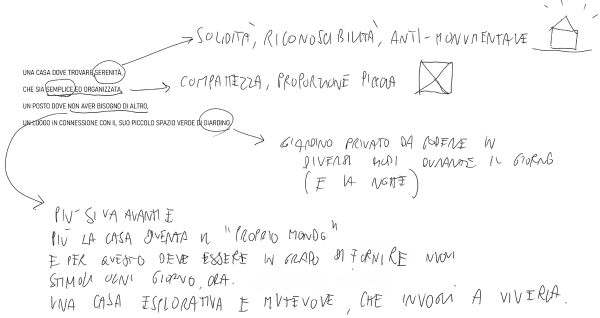 SOLIDITÀ, RICONOSCIBILITÀ, ANTI-MONUMENTALE
UNA CASA DOVE TROVARE SERENITÀ,
CHE SIA SEMPLICE ED ORGANIZZATA,
COMPATTEZZA, PROPORZIONE PICCOLA
UN POSTO DOVE NON AVER BISOGNO DI ALTRO,
UN LUOGO IN CONNESSIONE CON IL SUO PICCOLO SPAZIO VERDE DI GIARDINO.
GIARDINO PRIVATO DA GODERE IN
DIVERSI MODI DURANTE IL GIORNO
(E LA NOTTE)
PIÙ SI VA AVANTI E
PIÙ LA CASA DIVENTA IL "PROPRIO MONDO"
E PER QUESTO DEVE ESSERE IN GRADO DI FORNIRE NUOVI
STIMOLI OGNI GIORNO, ORA.
UNA CASA ESPLORATIVA E MUTEVOLE, CHE INVOGLI A VIVERLA.